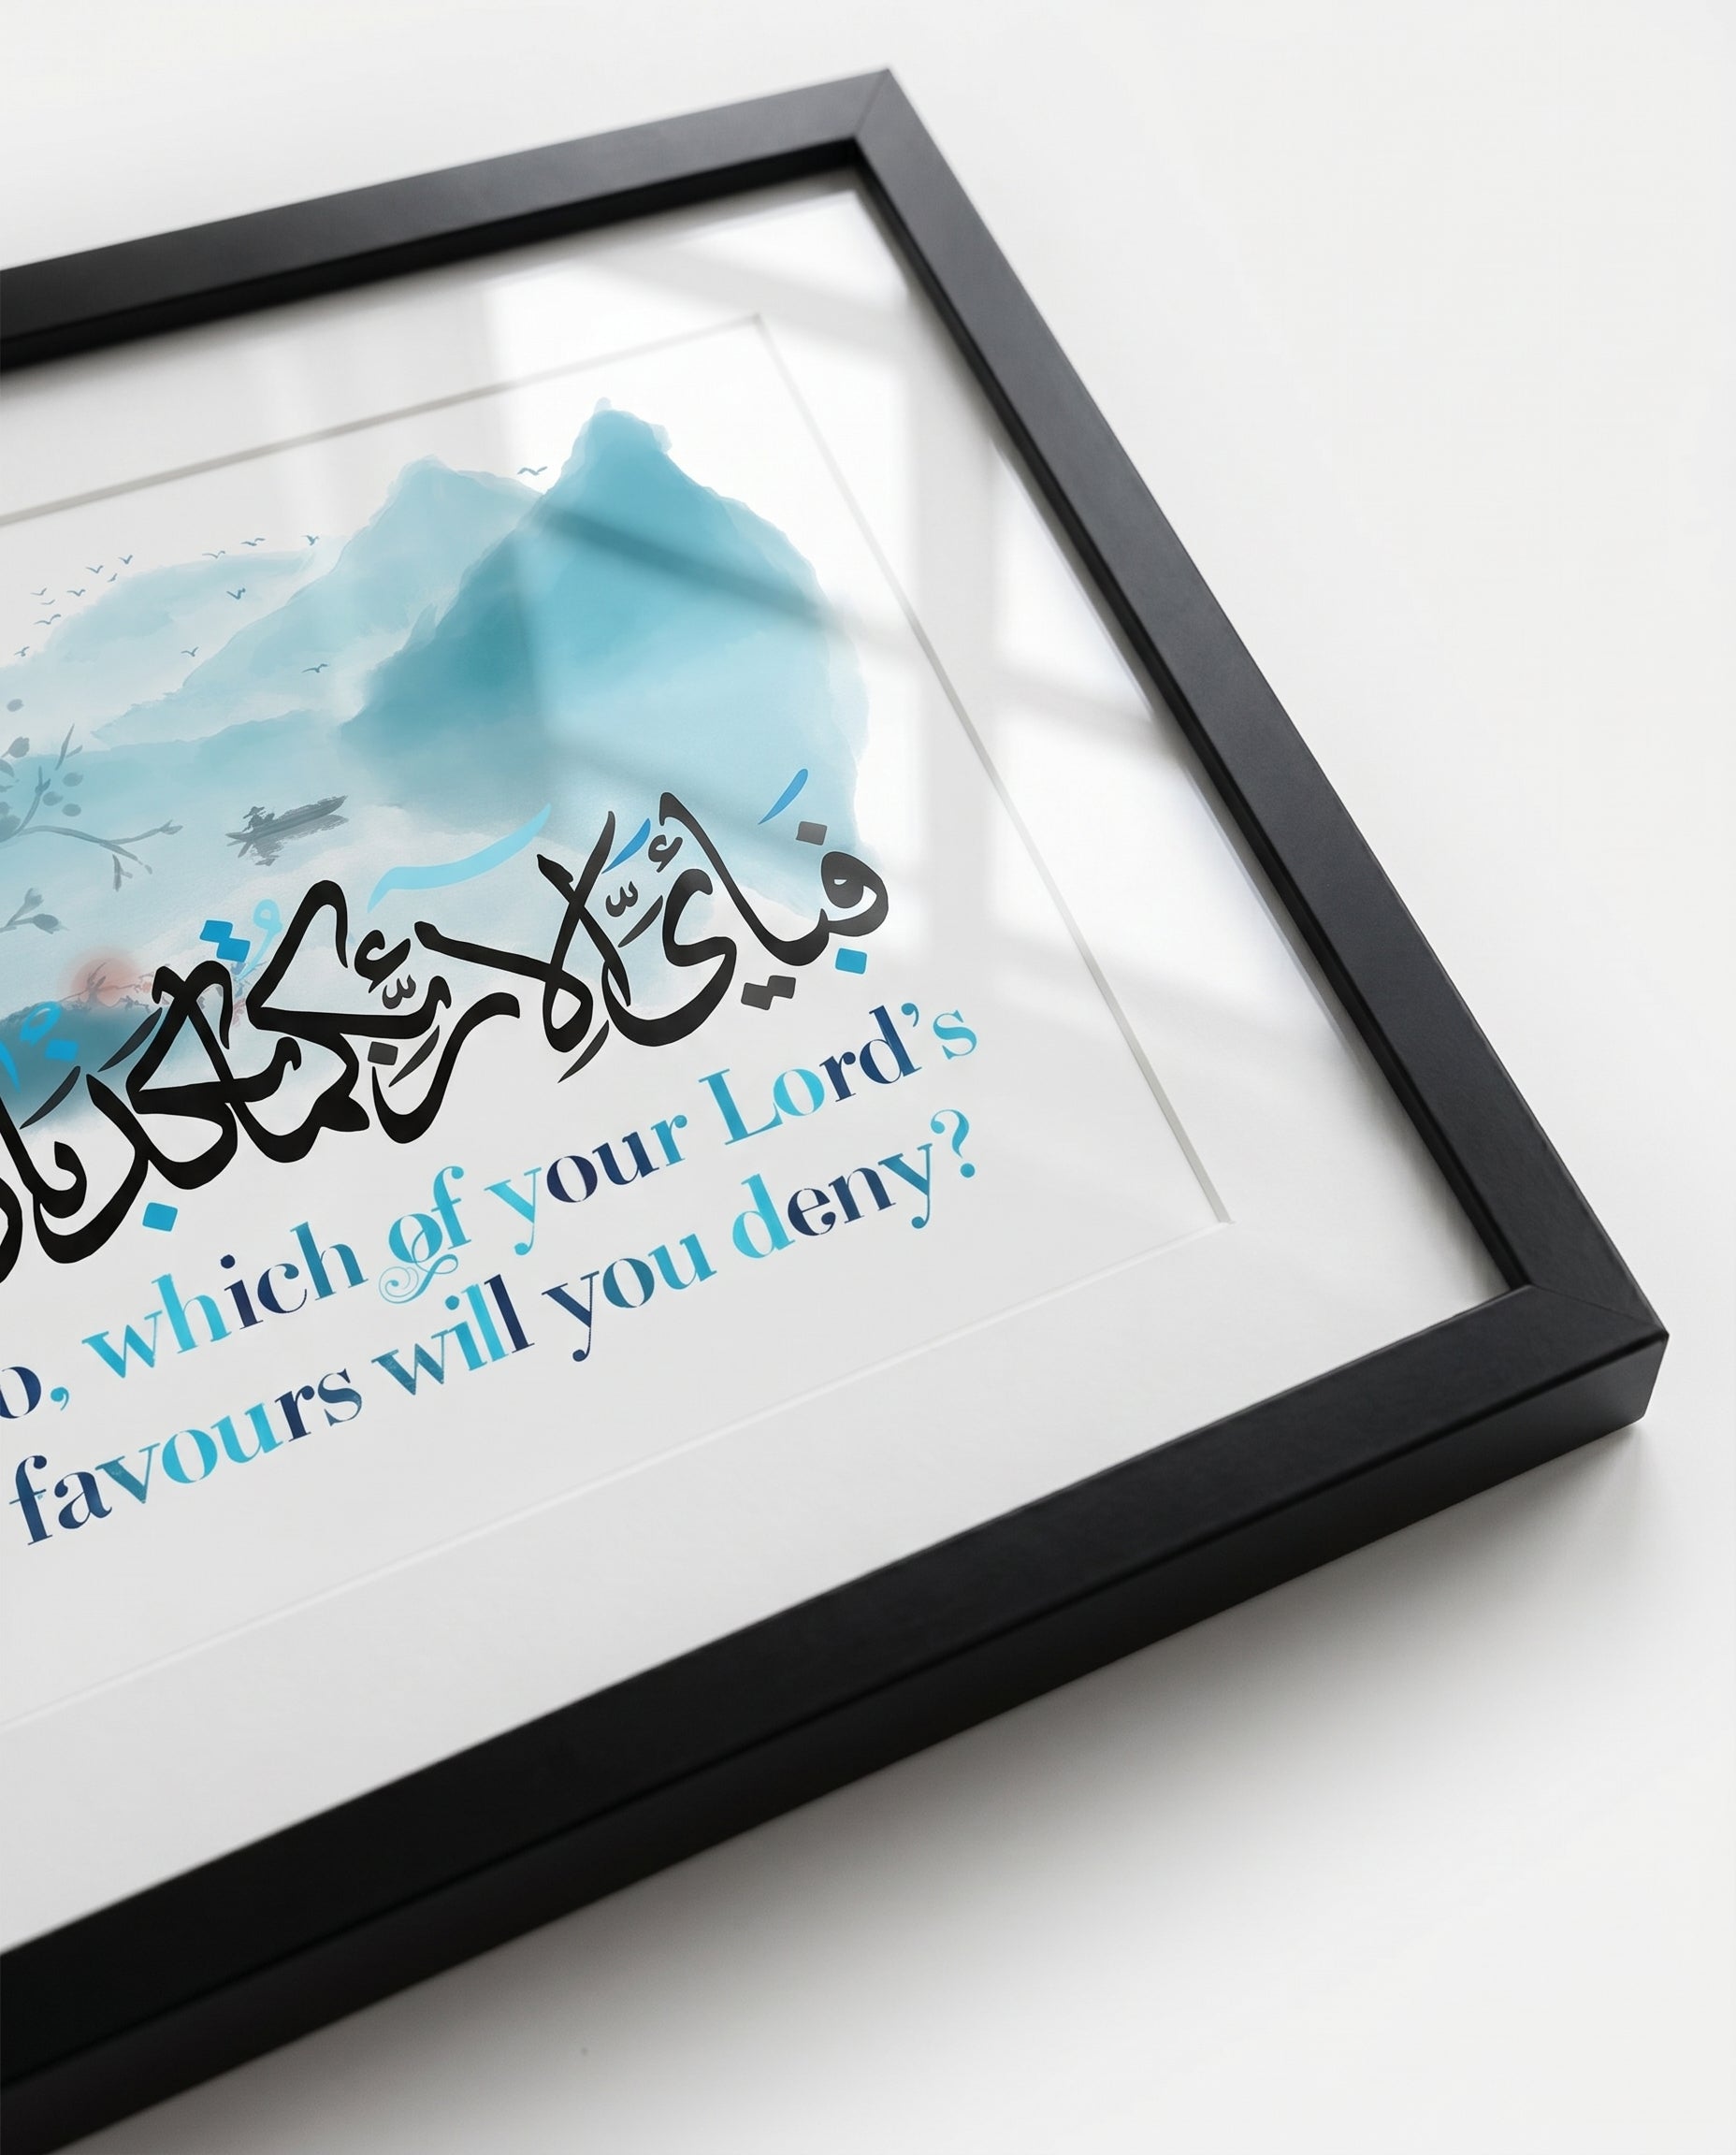 فَبِأَيِّ آلَاءِ رَبِّكُمَا تُكَذِّبَان
o, which of your Lord’s
favours will you deny?